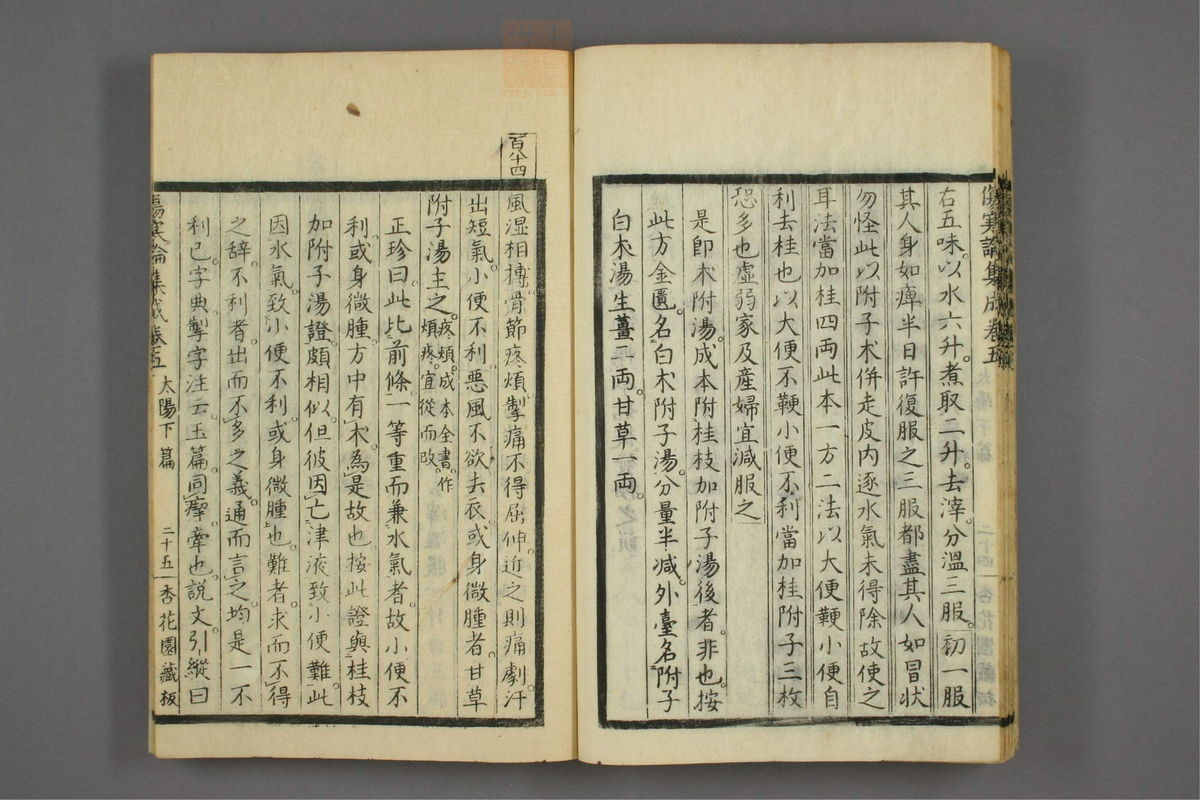 傷寒論集成卷五
右五味。以水六升。煮取二升。去滓。分溫三服。初一服
其人身如痺半日許復服之三服都盡其人如冒狀
勿怪此以附子朮併走皮內逐水氣未得除故使之
耳法當加桂四兩此本一方二法以大便鞕小便自
利去桂也以大便不鞕小便不利當加桂附子三枚
恐多也虛弱家及産婦宜減服之
是卽朮附湯。成本附桂枝加附子湯後者。非也。按
此方金匱。名白朮附子湯。分量半減。外臺名附子
白朮湯生薑二兩。甘草一兩。
百八十四
風湿相摶。骨節疼煩。掣痛不得屈伸。近之則痛劇。汗
出短氣。小便不利。惡風不欲去衣。或身微腫者。甘草
附子湯主之。疼煩。成本全書。作
煩疼。宜從而改。
正珍曰。此比前條。一等重而兼水氣者。故小便不
利。或身微腫。方中有朮。為是故也。按此證與桂枝
加附子湯證。頗相似。但彼因亡津液致小便難。此
因水氣。致小便不利。或身微腫也。難者。求而不得
之辭。不利者。出而不多之義。通而言之。均是一不
利已。字典掣字注云。玉篇。同㾭。牽也。說文。引縱曰
傷寒論集成卷五
太陽下篇
二十五
杏花園藏板